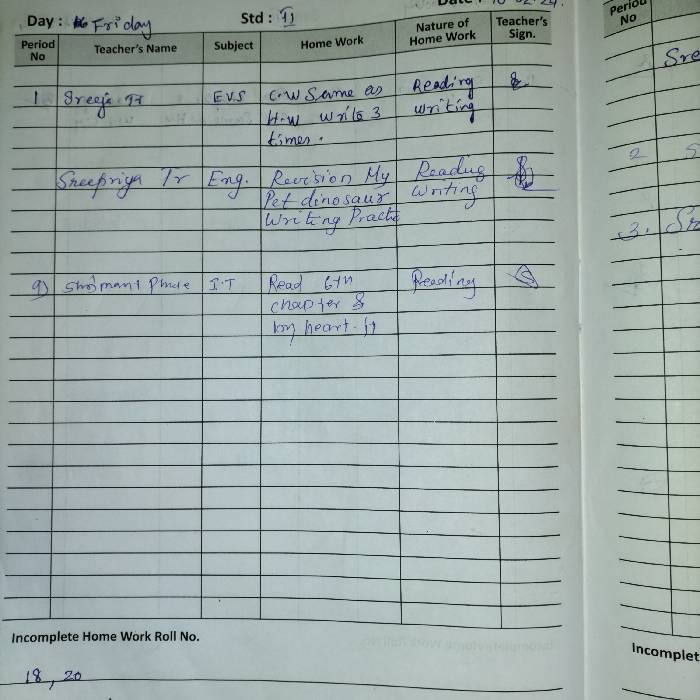 Day : Friday Std : II
Period No Teacher's Name Subject Home Work Nature of Home Work Teacher's Sign.
1 Sreeja Tr EVS C.W Same as Reading
H.W write 3 writing
times.
Sreepriya Tr Eng. Revision My Reading
Pet dinosaur Writing
Writing Practi
9) I.T Read 6th Reading
chapter &
by heart it
Incomplete Home Work Roll No.
18, 20
Period No
Sre
2 S
3. Sr
Incomplet